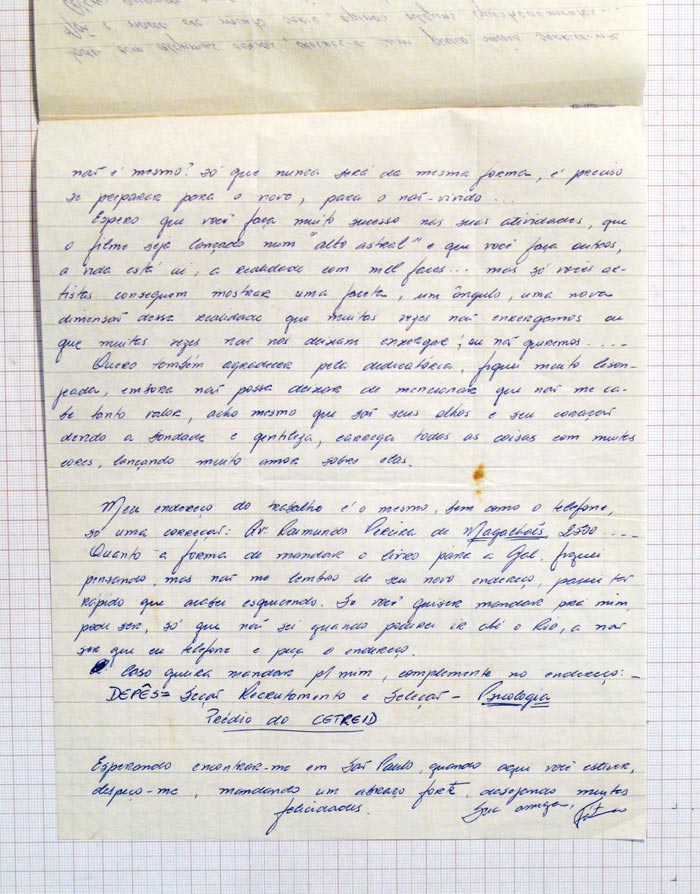 não é mesmo? só que nunca será da mesma forma, é preciso
se preparar para o novo, para o não-vivido...
Espero que você faça muito sucesso nas suas atividades, que
o filme seja lançado num "alto astral" e que você faça outros,
a vida está aí, a realidade com mil faces... mas só vocês ar-
tistas conseguem mostrar uma faceta, um ângulo, uma nova
dimensão dessa realidade que muitas vezes não enxergamos ou
que muitas vezes não nos deixam enxergar; ou não queremos....
Quero também agradecer pela dedicatória, fiquei muito lison-
jeada, embora não possa deixar de mencionar que não me ca-
be tanto valor, acho mesmo que são seus olhos e seu coração
devido a bondade e gentileza, carrega todas as coisas com muitas
cores, lançando muito amor sobre elas.
Meu endereço do trabalho é o mesmo, bem como o telefone,
só uma correção: Av. Raimundo Pereira de Magalhães 2500....
Quanto a forma de mandar o livro para a Gel. fiquei
pensando, mas não me lembro de seu novo endereço, passei tão
rápido que acabei esquecendo. Se você quiser mandar pra mim,
pode ser, só que não sei quando poderei ir até o Rio, a não
ser que eu telefone e peça o endereço.
Caso queira mandar p/ mim, complemente no endereço: -
DEPÊS= Seção Recrutamento e Seleção - Psicologia
Prédio do CETREID
Esperando encontrar-me em São Paulo, quando aqui você estiver,
despeço-me, mandando um abraço forte, desejando muitas
felicidades. Sua amiga,